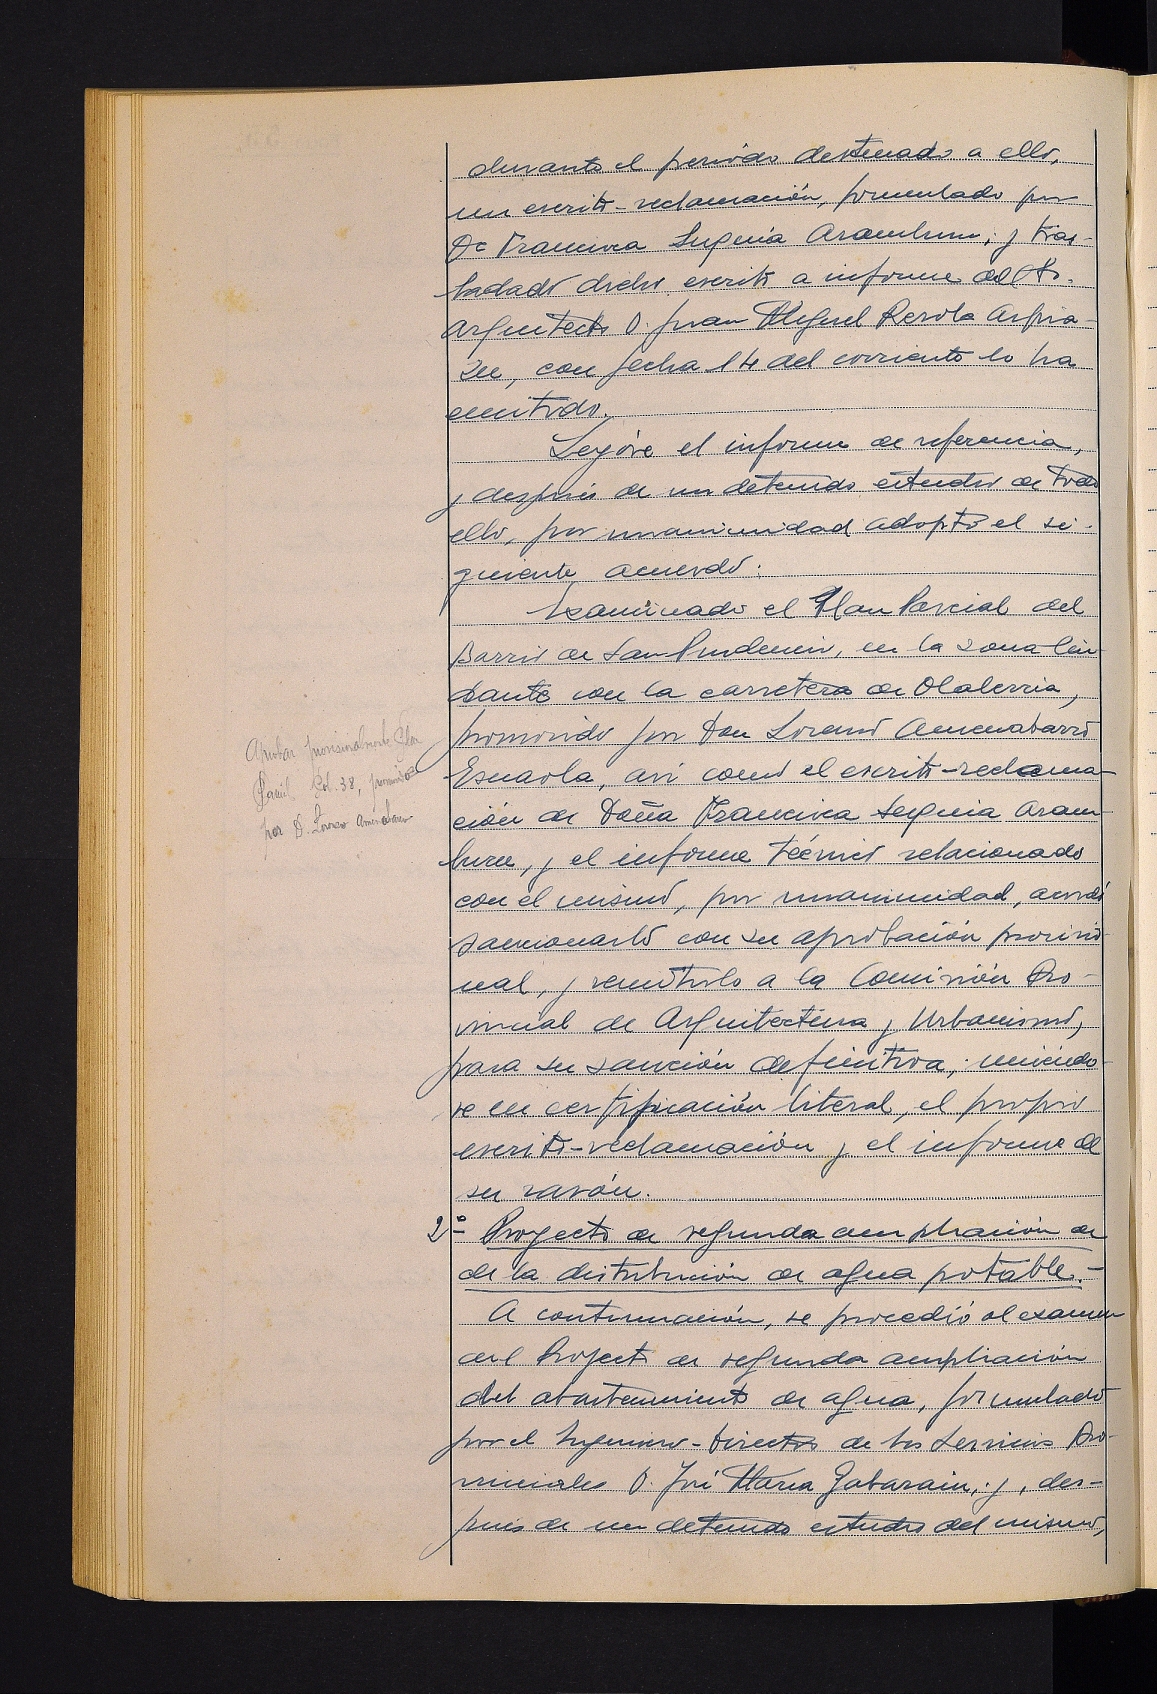 durante el período destinado a ello,
un escrito-reclamación, formulado por
Dª Francisca Seguía Aramburu; y tras-
ladado dicho escrito a informe del Sr.
Arquitecto D. Juan Miguel Rezola Azpia-
zu, con fecha 14 del corriente lo ha
emitido.
Leyóse el informe de referencia,
y después de un detenido estudio de todo
ello, por unanimidad adoptó el si-
guiente acuerdo:
Examinado el Plan Parcial del
Barrio de San Prudencio, en la zona lin-
dante con la carretera de Olaberria,
promovido por Don Lorenzo Amenabarro
Esnaola, así como el escrito-reclama-
ción de Doña Francisca Seguia Aram-
buru, y el informe técnico relacionado
con el mismo, por unanimidad, acordó
sancionarlo con su aprobación provisio-
nal, y remitirlo a la Comisión Pro-
vincial de Arquitectura y Urbanismo,
para su sanción definitiva; uniéndo-
se en certificación literal, el propio
escrito-reclamación y el informe de
su razón.
Aprobar provisionalmente Plan
Parcial Pol. 38, promovido
por D. Lorenzo Amenabarro
2º Proyecto de segunda ampliación de
de la distribución de agua potable.-
A continuación, se procedió al examen
del Proyecto de segunda ampliación
del abastecimiento de agua, formulado
por el Ingeniero-Director de los Servicios Pro-
vinciales D. José María Gabarain; y, des-
pués de un detenido estudio del mismo,